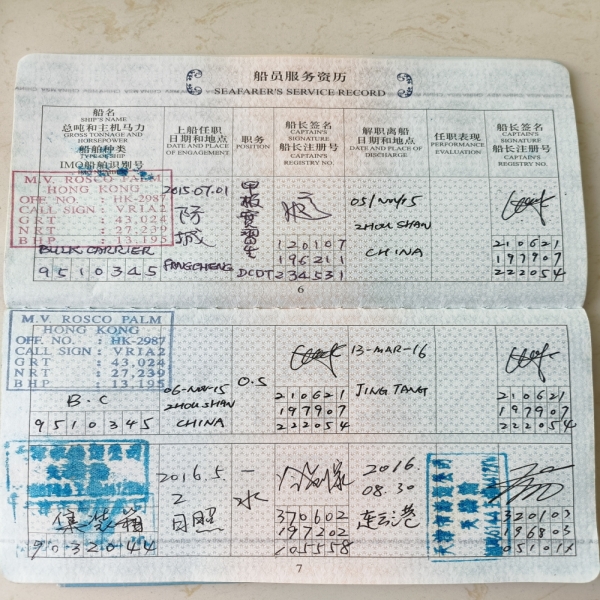 船员服务资历
SEAFARER'S SERVICE RECORD
船名
SHIP'S NAME
总吨和主机马力
GROSS TONNAGE AND
HORSEPOWER
船舶种类
TYPE OF SHIP
IMO船舶识别号
上船任职
日期和地点
DATE AND PLACE
OF ENGAGEMENT
职务
POSITION
船长签名
CAPTAIN'S
SIGNATURE
船长注册号
CAPTAIN'S
REGISTRY NO.
解职离船
日期和地点
DATE AND PLACE OF
DISCHARGE
任职表现
PERFORMANCE
EVALUATION
船长签名
CAPTAIN'S
SIGNATURE
船长注册号
CAPTAIN'S
REGISTRY NO.
M.V. ROSCO PALM
HONG KONG
OFF. NO. : HK-2987
CALL SIGN : VRIA2
GRT : 43,024
NRT : 27,239
BHP : 13,195
BULK CARRIER
9510345
2015.07.01
防城
FANGCHENG
甲板实习生
DCDT
120107
196211
234531
05/NOV/15
ZHOUSHAN
CHINA
210621
197907
222054
6
M.V. ROSCO PALM
HONG KONG
OFF. NO. : HK-2987
CALL SIGN : VRIA2
GRT : 43,024
NRT : 27,239
BHP : 13,195
B.C
9510345
06-NOV-15
ZHOUSHAN
CHINA
O.S
210621
197907
222054
13-MAR-16
JINGTANG
210621
197907
222054
集装箱
9032044
2016.5.
2
日照
一水
370602
197202
105558
2016.
08.30
连云港
320103
196803
7